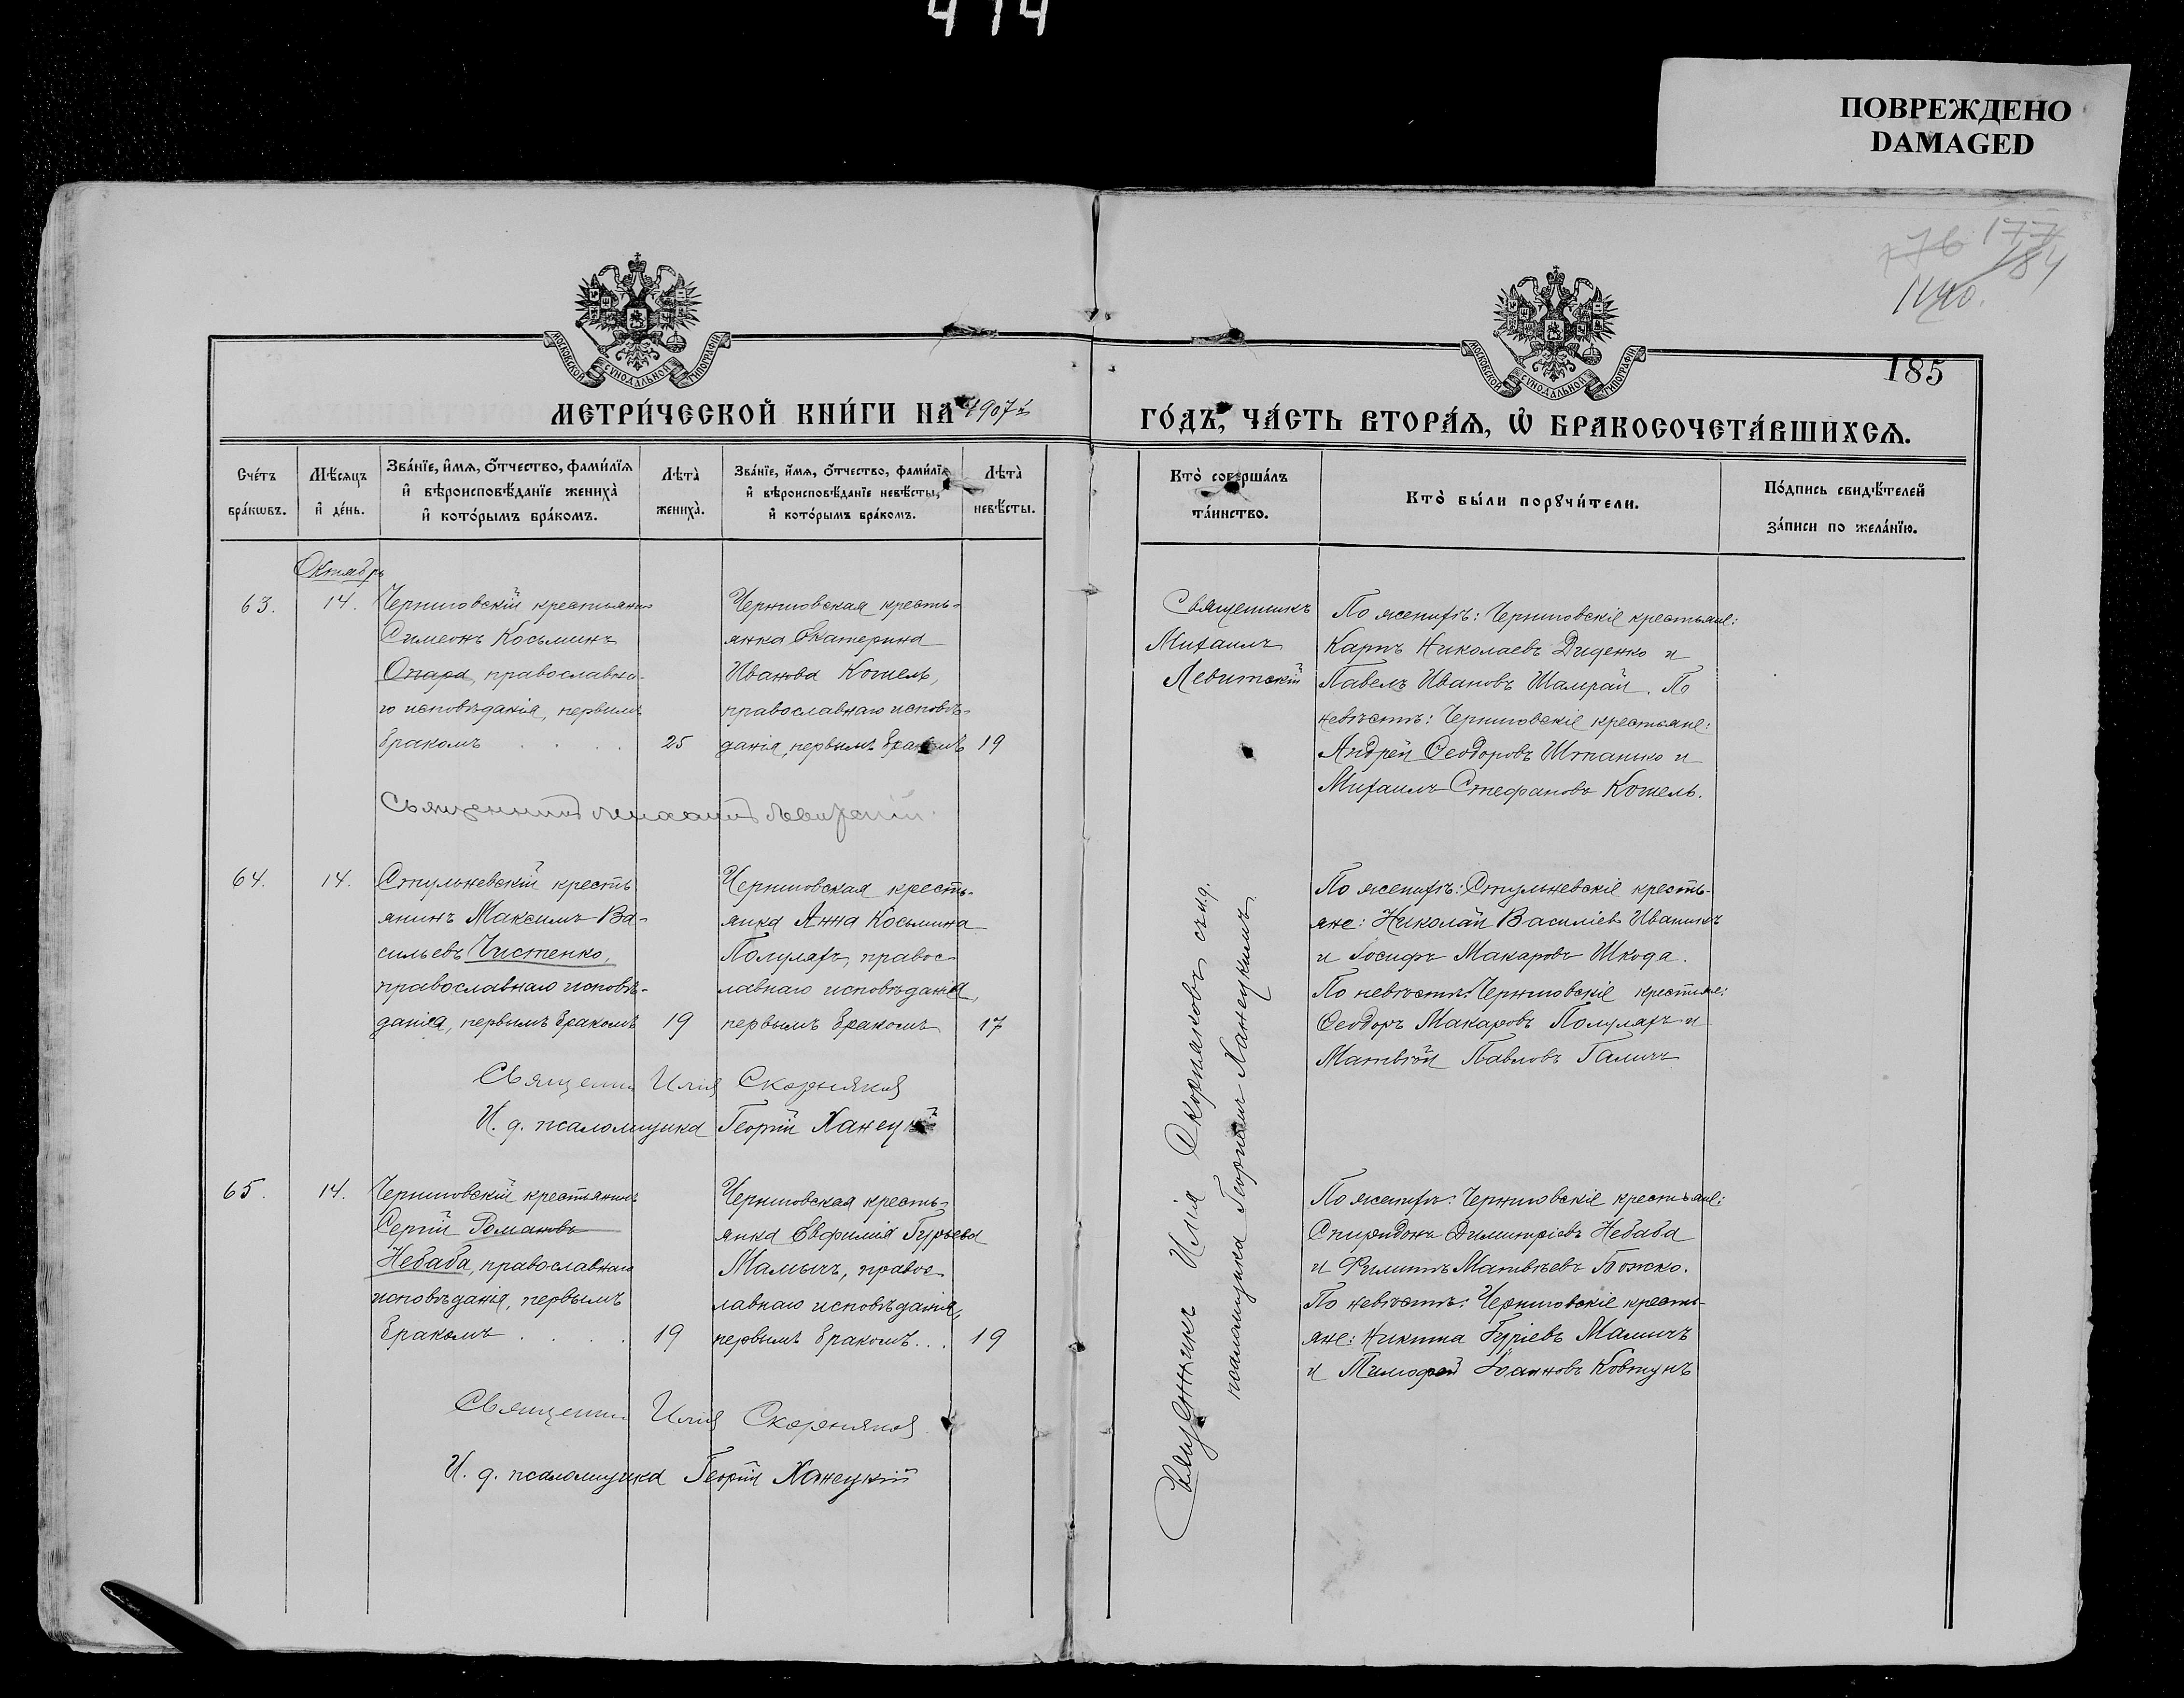 474
ПОВРЕЖДЕНО
DAMAGED
176 177
184
185
МОСКОВСКОЙ СУНОДАЛЬНОЙ ТИПОГРАФІИ
МОСКОВСКОЙ СУНОДАЛЬНОЙ ТИПОГРАФІИ
МЕТРИ́ЧЕСКОЙ КНИ́ГИ НА 1907й
ГО́ДЪ, ЧА́СТЬ ВТОРА́Ѧ, Ѡ БРАКОСОЧЕТА́ВШИХСѦ.
Сче́тъ
бра́кѡвъ.
Мѣ́сяцъ
и҆ де́нь.
Зва́нїе, и҆́мя, ѻ҆́тчество, фами́лїя
и҆ вѣроисповѣ́данїе жениха̀
и҆ кото́рымъ бра́комъ.
Лѣта̀
жениха̀.
Зва́нїе, и҆́мя, ѻ҆́тчество, фами́лїя
и҆ вѣроисповѣ́данїе невѣ́сты,
и҆ кото́рымъ бра́комъ.
Лѣта̀
невѣ́сты.
Кто̀ соверша́лъ
та́инство.
Кто̀ бы́ли порꙋчи́тели.
По́дпись свидѣ́телей
за́писи по жела́нїю.
Октябрь
63.
14.
Черниговскій крестьянинъ
Симеонъ Косьминъ
Опара, православна-
го исповѣданія, первымъ
бракомъ . . . .
25
Черниговская кресть-
янка Екатерина
Иванова Кошель,
православнаго исповѣ-
данія, первымъ бракомъ
19
Священникъ
Михаилъ
Левитскій
По женихѣ: Черниговскіе крестьяне:
Карпъ Николаевъ Диденко и
Павелъ Ивановъ Шамрай. По
невѣстѣ: Черниговскіе крестьяне:
Андрей Ѳеодоровъ Штанько и
Михаилъ Стефановъ Кошель.
Священникъ Михаилъ Левитскій
64.
14.
Стульневскій кресть
янинъ Максимъ Ва-
сильевъ Чистенко,
православнаго исповѣ-
данія, первымъ бракомъ
19
Черниговская кресть-
янка Анна Косьмина
Полулях, правос-
лавнаго исповѣданія,
первымъ бракомъ
17
По женихѣ: Стульневскіе кресть-
яне: Николай Василіевъ Иваникъ
и Іосифъ Макаровъ Шкода.
По невѣстѣ: Черниговскіе крестьяне:
Ѳеодоръ Макаровъ Полуляхъ и
Матвѣй Павловъ Галичъ
Священни Илія Скорняковъ
И. д. псаломщика Георгій Ханецкій
65.
14.
Черниговскій крестьянинъ
Сергій Романовъ
Небаба, православнаго
исповѣданія, первымъ
бракомъ . . . .
19
Черниговская кресть-
янка Евфимія Гурьева
Мамычъ, правос-
лавнаго исповѣданія,
первымъ бракомъ...
19
По женихѣ: Черниговскіе крестьяне:
Спиридонъ Димитріевъ Небаба
и Филиппъ Матвѣевъ Божко.
По невѣстѣ: Черниговскіе кресть-
яне: Никита Гуріевъ Мамичъ
и Тимофей Іоанновъ Ковтунъ
Священни Илія Скорняковъ
И. д. псаломщика Георгій Ханецкій
Священникъ Илія Скорняковъ съ и. д.
псаломщика Георгіемъ Ханецкимъ